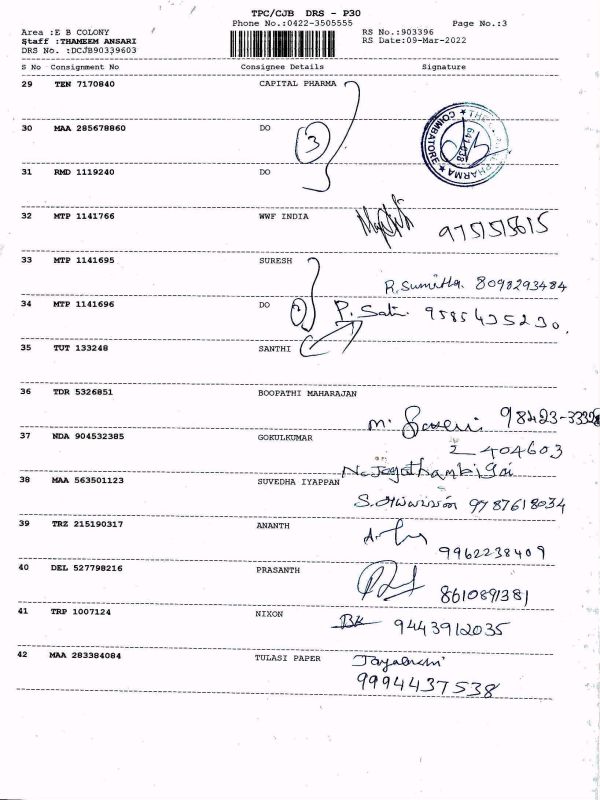 TPC/CJB DRS - P30
Phone No.:0422-3505555 Page No.:3
Area :E B COLONY RS No.:903396
Staff :THAMEEM ANSARI RS Date:09-Mar-2022
DRS No. :DCJB90339603
S No Consignment No Consignee Details Signature
29 TEN 7170840 CAPITAL PHARMA
30 MAA 285678860 DO 3
COIMBATORE
PHARMA
31 RMD 1119240 DO
32 MTP 1141766 WWF INDIA
9751515615
33 MTP 1141695 SURESH
R.Sumitha 8098293484
34 MTP 1141696 DO 2 P. Sati 9585435230.
35 TUT 133248 SANTHI
36 TDR 5326851 BOOPATHI MAHARAJAN
M. 98423-33328
37 NDA 904532385 GOKULKUMAR
2404603
38 MAA 563501123 SUVEDHA IYAPPAN
9787618034
39 TRZ 215190317 ANANTH
9962238409
40 DEL 527798216 PRASANTH
8610891381
41 TRP 1007124 NIXON
9443912035
42 MAA 283384084 TULASI PAPER
9994437538